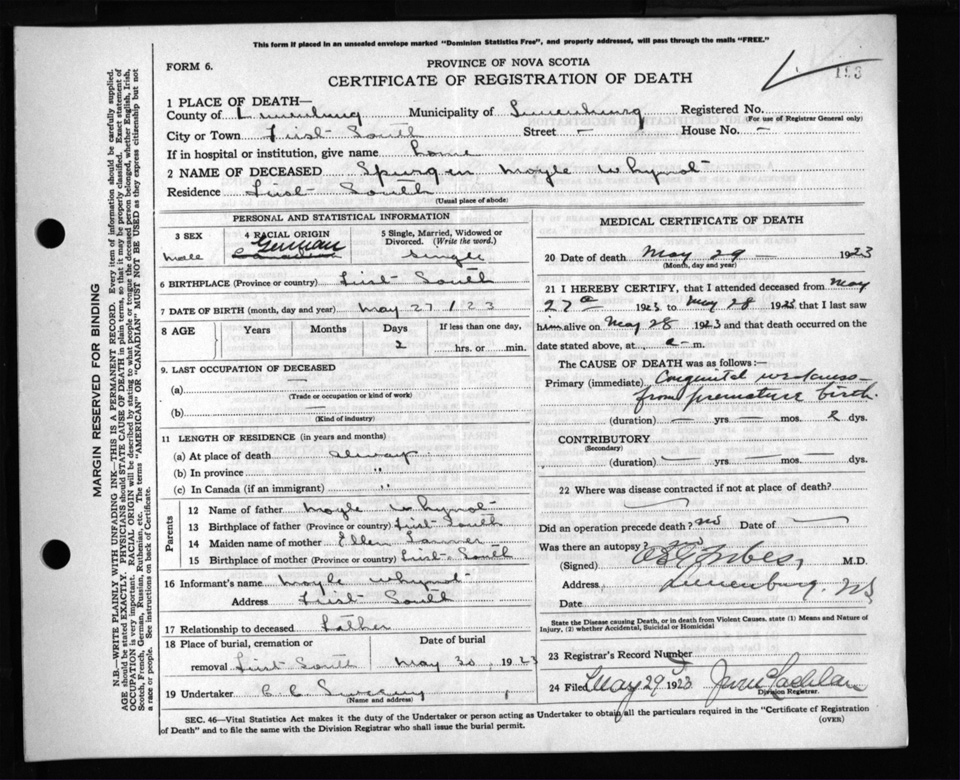 This form if placed in an unsealed envelope marked "Dominion Statistics Free", and properly addressed, will pass through the mails "FREE."
FORM 6.
PROVINCE OF NOVA SCOTIA
CERTIFICATE OF REGISTRATION OF DEATH
193
1 PLACE OF DEATH—
County of Lunenburg Municipality of Lunenburg Registered No.
(For use of Registrar General only)
City or Town First South Street — House No. —
If in hospital or institution, give name home
2 NAME OF DECEASED Spurgen Moyle Whynot
Residence First South
(Usual place of abode)
PERSONAL AND STATISTICAL INFORMATION
3 SEX 4 RACIAL ORIGIN 5 Single, Married, Widowed or Divorced. (Write the word.)
male German Canadian Single
6 BIRTHPLACE (Province or country) First South
7 DATE OF BIRTH (month, day and year) May 27 / 23
8 AGE Years Months Days If less than one day,
2 hrs. or min.
9. LAST OCCUPATION OF DECEASED
(a) —
(Trade or occupation or kind of work)
(b) —
(Kind of industry)
11 LENGTH OF RESIDENCE (in years and months)
(a) At place of death always
(b) In province "
(c) In Canada (if an immigrant) "
Parents
12 Name of father Moyle Whynot
13 Birthplace of father (Province or country) First South
14 Maiden name of mother Ellen Tanner
15 Birthplace of mother (Province or country) First South
16 Informant's name Moyle Whynot
Address First South
17 Relationship to deceased Father
18 Place of burial, cremation or removal First South Date of burial May 30, 1923
19 Undertaker C. C. Sweeny
(Name and address)
MEDICAL CERTIFICATE OF DEATH
20 Date of death May 29 — 1923
(Month, day and year)
21 I HEREBY CERTIFY, that I attended deceased from May
27 1923 to May 28 1923 that I last saw
him alive on May 28 1923 and that death occurred on the
date stated above, at a — m.
The CAUSE OF DEATH was as follows:—
Primary (immediate) Congenital weakness
from premature birth.
(duration) — yrs. — mos. 2 dys.
CONTRIBUTORY
(Secondary)
(duration) — yrs. — mos. — dys.
22 Where was disease contracted if not at place of death?
Did an operation precede death? no Date of —
Was there an autopsy? no
(Signed) Forbes, M.D.
Address Lunenburg, NS
Date
State the Disease causing Death, or in death from Violent Causes, state (1) Means and Nature of Injury, (2) whether Accidental, Suicidal or Homicidal
23 Registrar's Record Number
24 Filed May 29 1923
Division Registrar.
SEC. 46—Vital Statistics Act makes it the duty of the Undertaker or person acting as Undertaker to obtain all the particulars required in the "Certificate of Registration
of Death" and to file the same with the Division Registrar who shall issue the burial permit.
(OVER)
MARGIN RESERVED FOR BINDING
N.B.—WRITE PLAINLY WITH UNFADING INK—THIS IS A PERMANENT RECORD. Every item of information should be carefully supplied.
AGE should be stated EXACTLY. PHYSICIANS should STATE CAUSE OF DEATH in plain terms, so that it may be properly classified. Exact statement of
OCCUPATION is very important. RACIAL ORIGIN will be described by stating to what people or tongue the deceased person belonged, whether English, Irish,
Scotch, French, German, Russian, Ruthenian, etc. The terms "AMERICAN" OR "CANADIAN" MUST NOT BE USED as they express citizenship but not
a race or people. See instructions on back of Certificate.